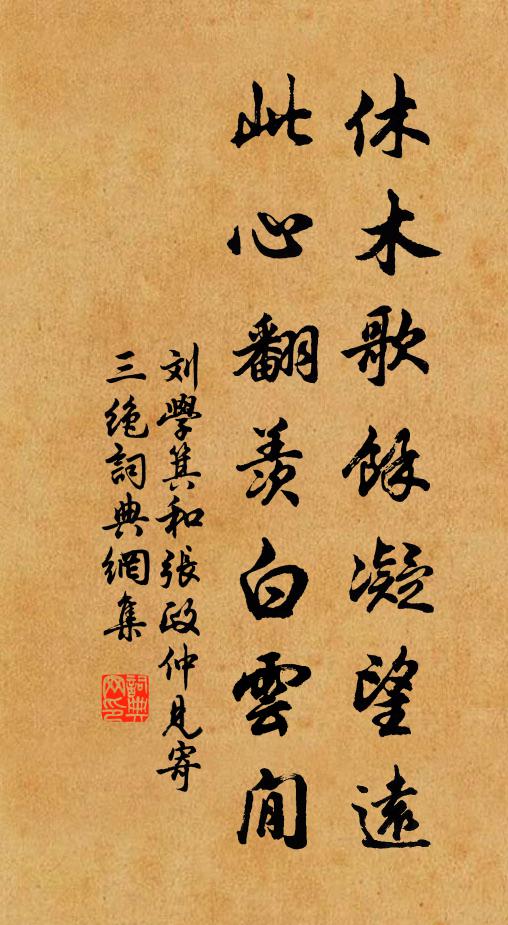 休木歌餘凝望遠
此心翻羨白雲閒
刘學箕和張政仲見寄
三絶詞典網集
詞典網印